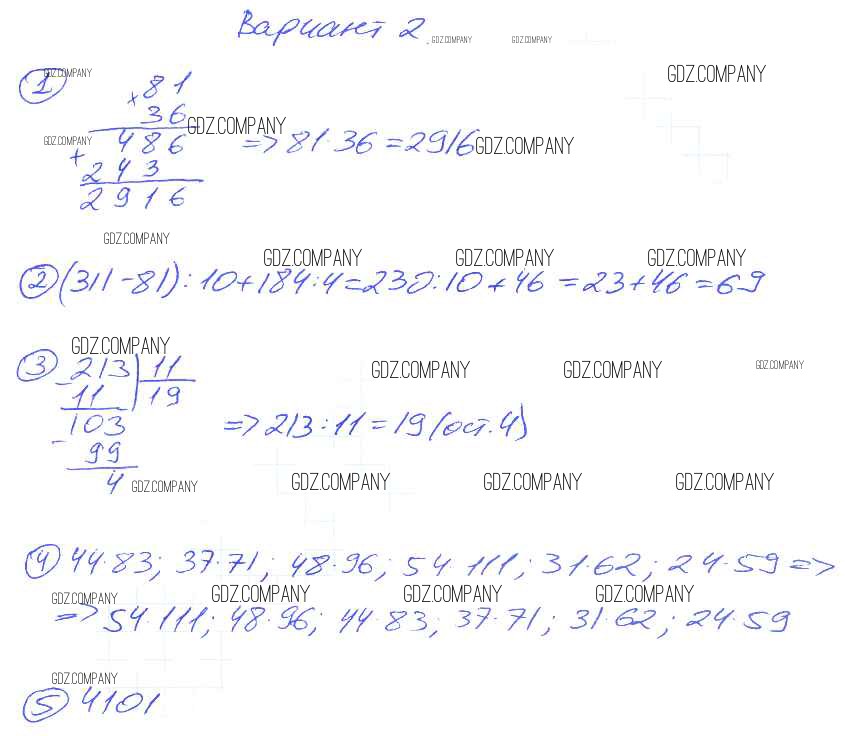 Вариант 2.
GDZ.COMPANY GDZ.COMPANY
① GDZ.COMPANY × 81 GDZ.COMPANY
36 GDZ.COMPANY
GDZ.COMPANY 486 => 81·36=2916 GDZ.COMPANY
+ 243
2916
GDZ.COMPANY GDZ.COMPANY GDZ.COMPANY GDZ.COMPANY
② (311-81):10+184:4=230:10+46=23+46=69
GDZ.COMPANY
③ - 213 | 11 GDZ.COMPANY GDZ.COMPANY GDZ.COMPANY
11 | 19
103 => 213:11=19(ост.4)
- 99
4 GDZ.COMPANY GDZ.COMPANY GDZ.COMPANY GDZ.COMPANY
④ 44·83; 37·71; 48·96; 54·111; 31·62; 24·59 =>
GDZ.COMPANY GDZ.COMPANY GDZ.COMPANY GDZ.COMPANY
=> 54·111; 48·96; 44·83; 37·71; 31·62; 24·59
GDZ.COMPANY
⑤ 4101